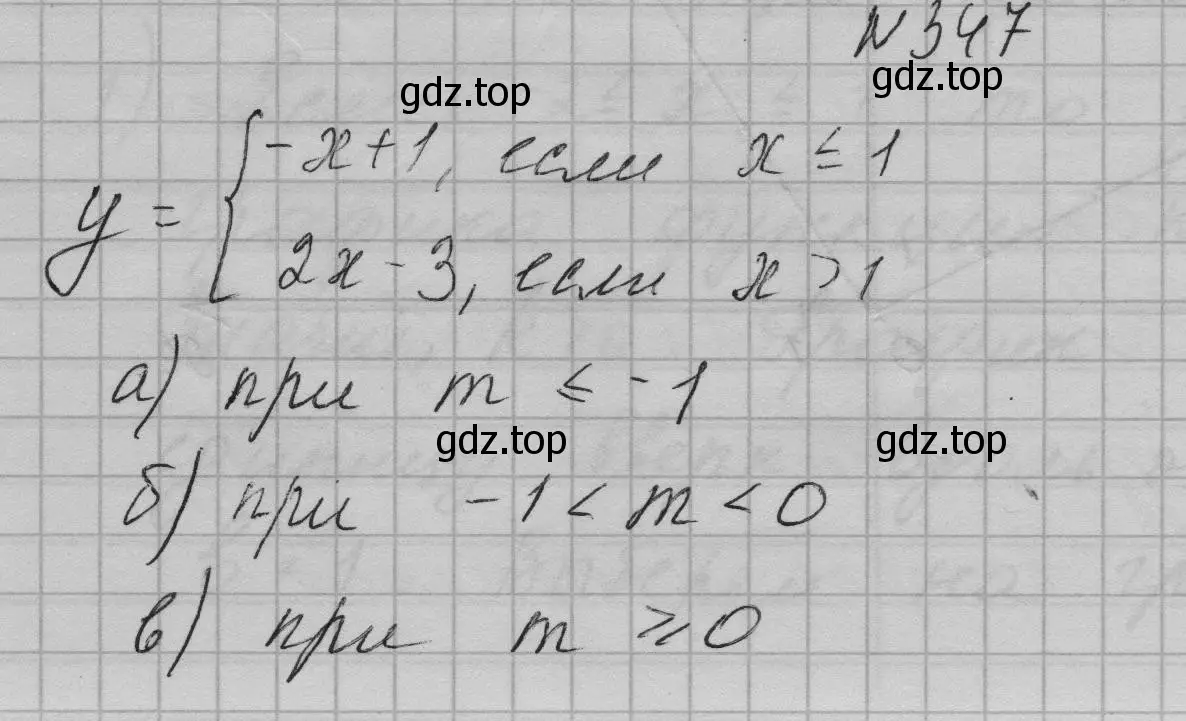 N 347
gdz.top gdz.top
y = { -x + 1, если x ≤ 1
2x - 3, если x > 1
а) при m ≤ -1
gdz.top gdz.top
б) при -1 < m < 0
в) при m ≥ 0